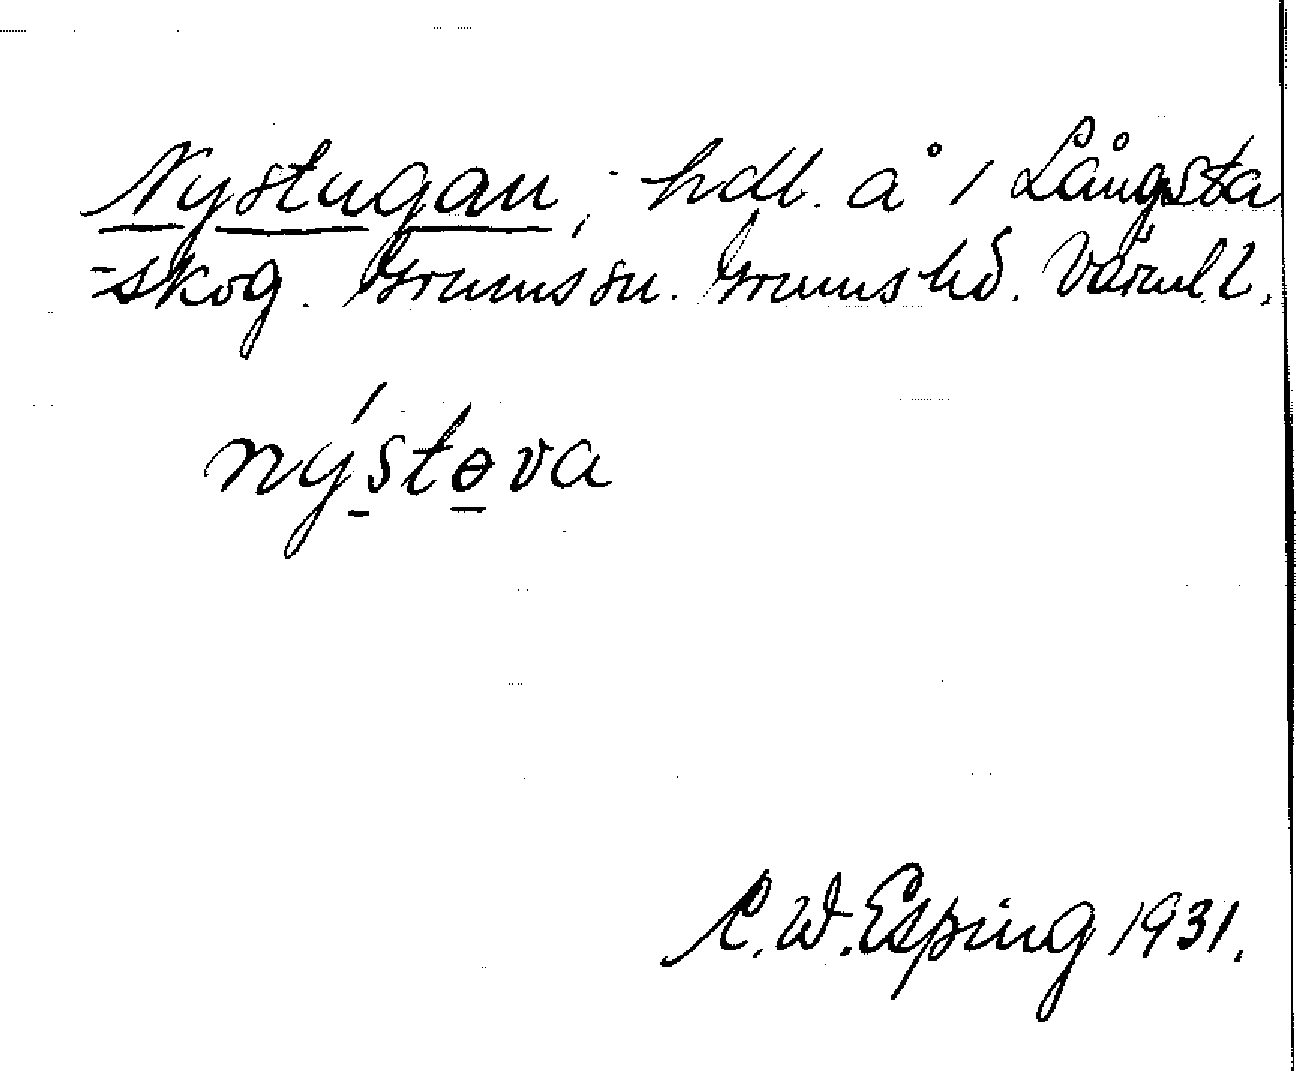 Nystugan, hdl. å 1 Långsta
-skog. Grums sn. Grums hd. Värml. l.
nýstɵva
C. W. Esping 1931.